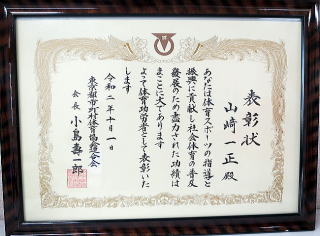 表彰状
山﨑一正殿
あなたは体育スポーツの指導と
振興に貢献し社会体育の普及
発展のため尽力された功績は
まことに大であります
よって体育功労者として表彰いた
します
令和二年十月一日
東京都市町村体育協会連合会
会長 小島壽一郎